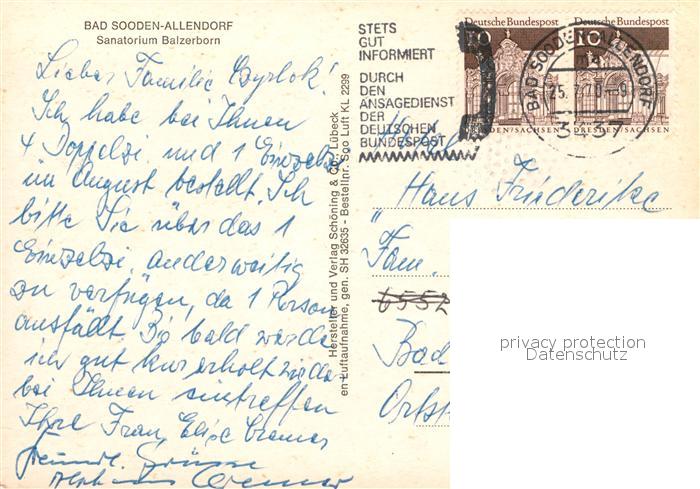 BAD SOODEN-ALLENDORF
Sanatorium Balzerborn
Liebe Familie
Ich habe bei Ihnen
4 Doppelzi und 1 Einzelzi
im August bestellt. Ich
bitte Sie über das 1
Einzelzi. anderweitig
zu verfügen, da 1 Person
ausfällt. Bis bald werde
ich gut kurerholt wieder
bei Ihnen eintreffen
Ihre Frau Elise Cremer
freundl. Grüsse
Cremer
Hersteller und Verlag Schöning & Co., Lübeck
en Luftaufnahme, gen. SH 32635 - Bestellnr. Sgo Luft KL 2299
STETS
GUT
INFORMIERT
DURCH
DEN
ANSAGEDIENST
DER
DEUTSCHEN
BUNDESPOST
Deutsche Bundespost
10
DRESDEN/SACHSEN
Deutsche Bundespost
10
DRESDEN/SACHSEN
BAD SOODEN-ALLENDORF
25.7.70-9
3437
"Haus Friederike
Fam.
6552
Bad
Ortst
privacy protection
Datenschutz